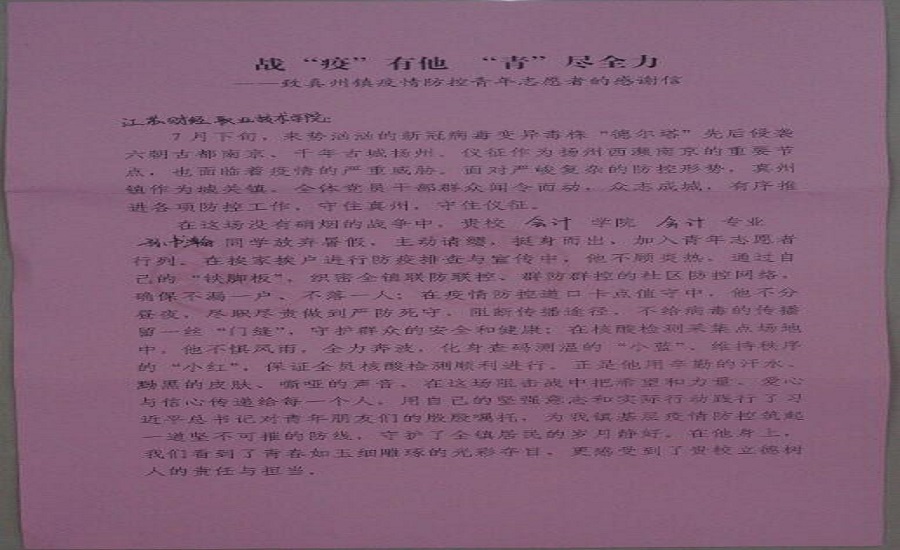 战“疫”有他 “青”尽全力
——致真州镇疫情防控青年志愿者的感谢信
江苏财经职业技术学院:
7月下旬，来势汹汹的新冠病毒变异毒株“德尔塔”先后侵袭
六朝古都南京、千年古城扬州。仪征作为扬州西濒南京的重要节
点，也面临着疫情的严重威胁。面对严峻复杂的防控形势，真州
镇作为城关镇，全体党员干部群众闻令而动，众志成城，有序推
进各项防控工作，守住真州，守住仪征。
在这场没有硝烟的战争中，贵校 会计 学院 会计 专业
同学放弃暑假，主动请缨，挺身而出，加入青年志愿者
行列。在挨家挨户进行防疫排查与宣传中，他不顾炎热，通过自
己的“铁脚板”，织密全镇联防联控、群防群控的社区防控网络，
确保不漏一户、不落一人；在疫情防控道口卡点值守中，他不分
昼夜，尽职尽责做到严防死守，阻断传播途径，不给病毒的传播
留一丝“门缝”，守护群众的安全和健康；在核酸检测采集点场地
中，他不惧风雨，全力奔波，化身查码测温的“小蓝”、维持秩序
的“小红”，保证全员核酸检测顺利进行。正是他用辛勤的汗水、
黝黑的皮肤、嘶哑的声音，在这场阻击战中把希望和力量、爱心
与信心传递给每一个人，用自己的坚强意志和实际行动践行了习
近平总书记对青年朋友们的殷殷嘱托，为我镇基层疫情防控筑起
一道坚不可摧的防线，守护了全镇居民的岁月静好。在他身上，
我们看到了青春如玉细雕琢的光彩夺目，更感受到了贵校立德树
人的责任与担当。